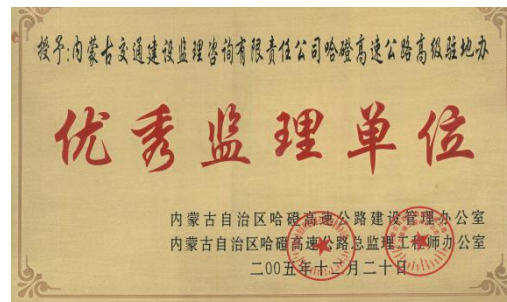 授予:内蒙古交通建设监理咨询有限责任公司哈磴高速公路高级驻地办
优秀监理单位
内蒙古自治区哈磴高速公路建设管理办公室
内蒙古自治区哈磴高速公路总监理工程师办公室
二00五年十二月二十日